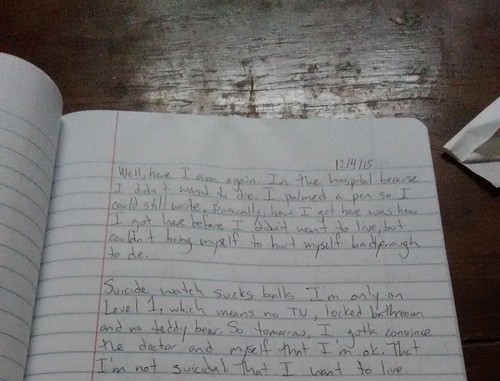 12/4/15
Well, here I am again. In the hospital because
I didn't want to die. I palmed a pen so I
could still write. Basically, how I got here was how
I got here before. I didn't want to live, but
couldn't bring myself to hurt myself bad enough
to die.
Suicide watch sucks balls. I'm only on
Level 1, which means no TV, locked bathroom
and no teddy bear. So tomorrow, I gotta convince
the doctor and myself that I'm ok. That
I'm not suicidal. That I want to live